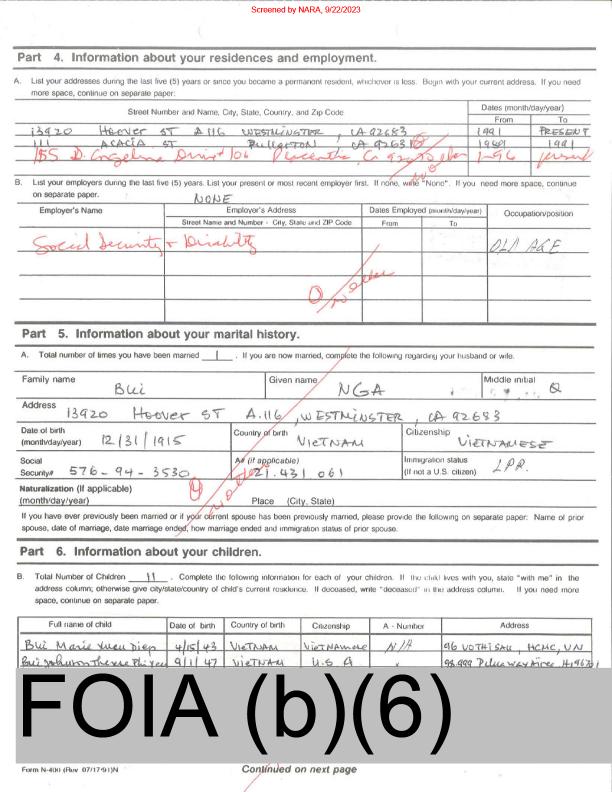 Screened by NARA, 9/22/2023
Part 4. Information about your residences and employment.
A. List your addresses during the last five (5) years or since you became a permanent resident, whichever is less. Begin with your current address. If you need
more space, continue on separate paper:
Street Number and Name, City, State, Country, and Zip Code
Dates (month/day/year)
From To
13920 Hoover ST A.116 WESTMINSTER, CA 92683 1991 PRESENT
111 ACACIA ST FULLERTON CA 1991
Placentia, Ca 1-96 present
B. List your employers during the last five (5) years. List your present or most recent employer first. If none, write "None". If you need more space, continue
on separate paper. NONE
Employer's Name Employer's Address Dates Employed (month/day/year) Occupation/position
Street Name and Number - City, State and ZIP Code From To
Social Security & Disability OLD AGE
Part 5. Information about your marital history.
A. Total number of times you have been married 1 . If you are now married, complete the following regarding your husband or wife.
Family name Given name Middle initial
Bui NGA Q
Address
13920 Hoover ST A.116, WESTMINSTER, CA 92683
Date of birth (month/day/year) 12/31/1915 Country of birth VIETNAM Citizenship VIETNAMESE
Social Security# 576-94-3530 A# (if applicable) 21.431 061 Immigration status (If not a U.S. citizen) LPR.
Naturalization (If applicable)
(month/day/year) Place (City, State)
If you have ever previously been married or if your current spouse has been previously married, please provide the following on separate paper: Name of prior
spouse, date of marriage, date marriage ended, how marriage ended and immigration status of prior spouse.
Part 6. Information about your children.
B. Total Number of Children 11 . Complete the following information for each of your children. If the child lives with you, state "with me" in the
address column; otherwise give city/state/country of child's current residence. If deceased, write "deceased" in the address column. If you need more
space, continue on separate paper.
Full name of child Date of birth Country of birth Citizenship A - Number Address
Bui Marie Xuan Diep 4/15/43 VIETNAM Vietnamese N/A 96 VO THI SAU, HCMC, VN
Bui 9/1/47 VIETNAM U.S A
FOIA (b)(6)
Form N-400 (Rev 07/17/91)N Continued on next page